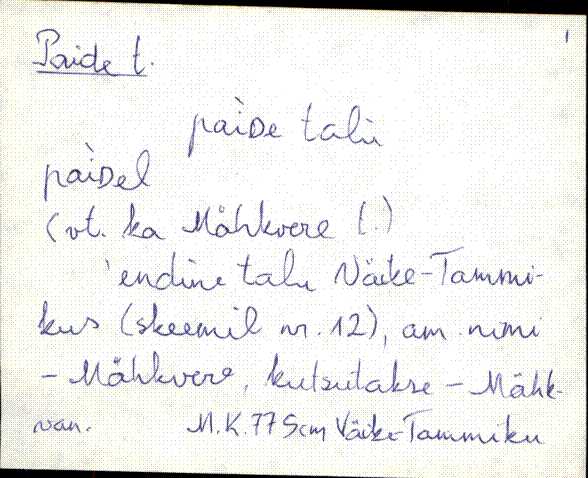 Paide t.
pàiDe talù
pàiDel
(vt. ka Mähkvere (.)
'endine talu Väike-Tammi-
kus (skeemil nr. 12), am. nimi
- Mähkvere, kutsutakse - Mähk-
van. M.K. 77 Scm Väike-Tammiku